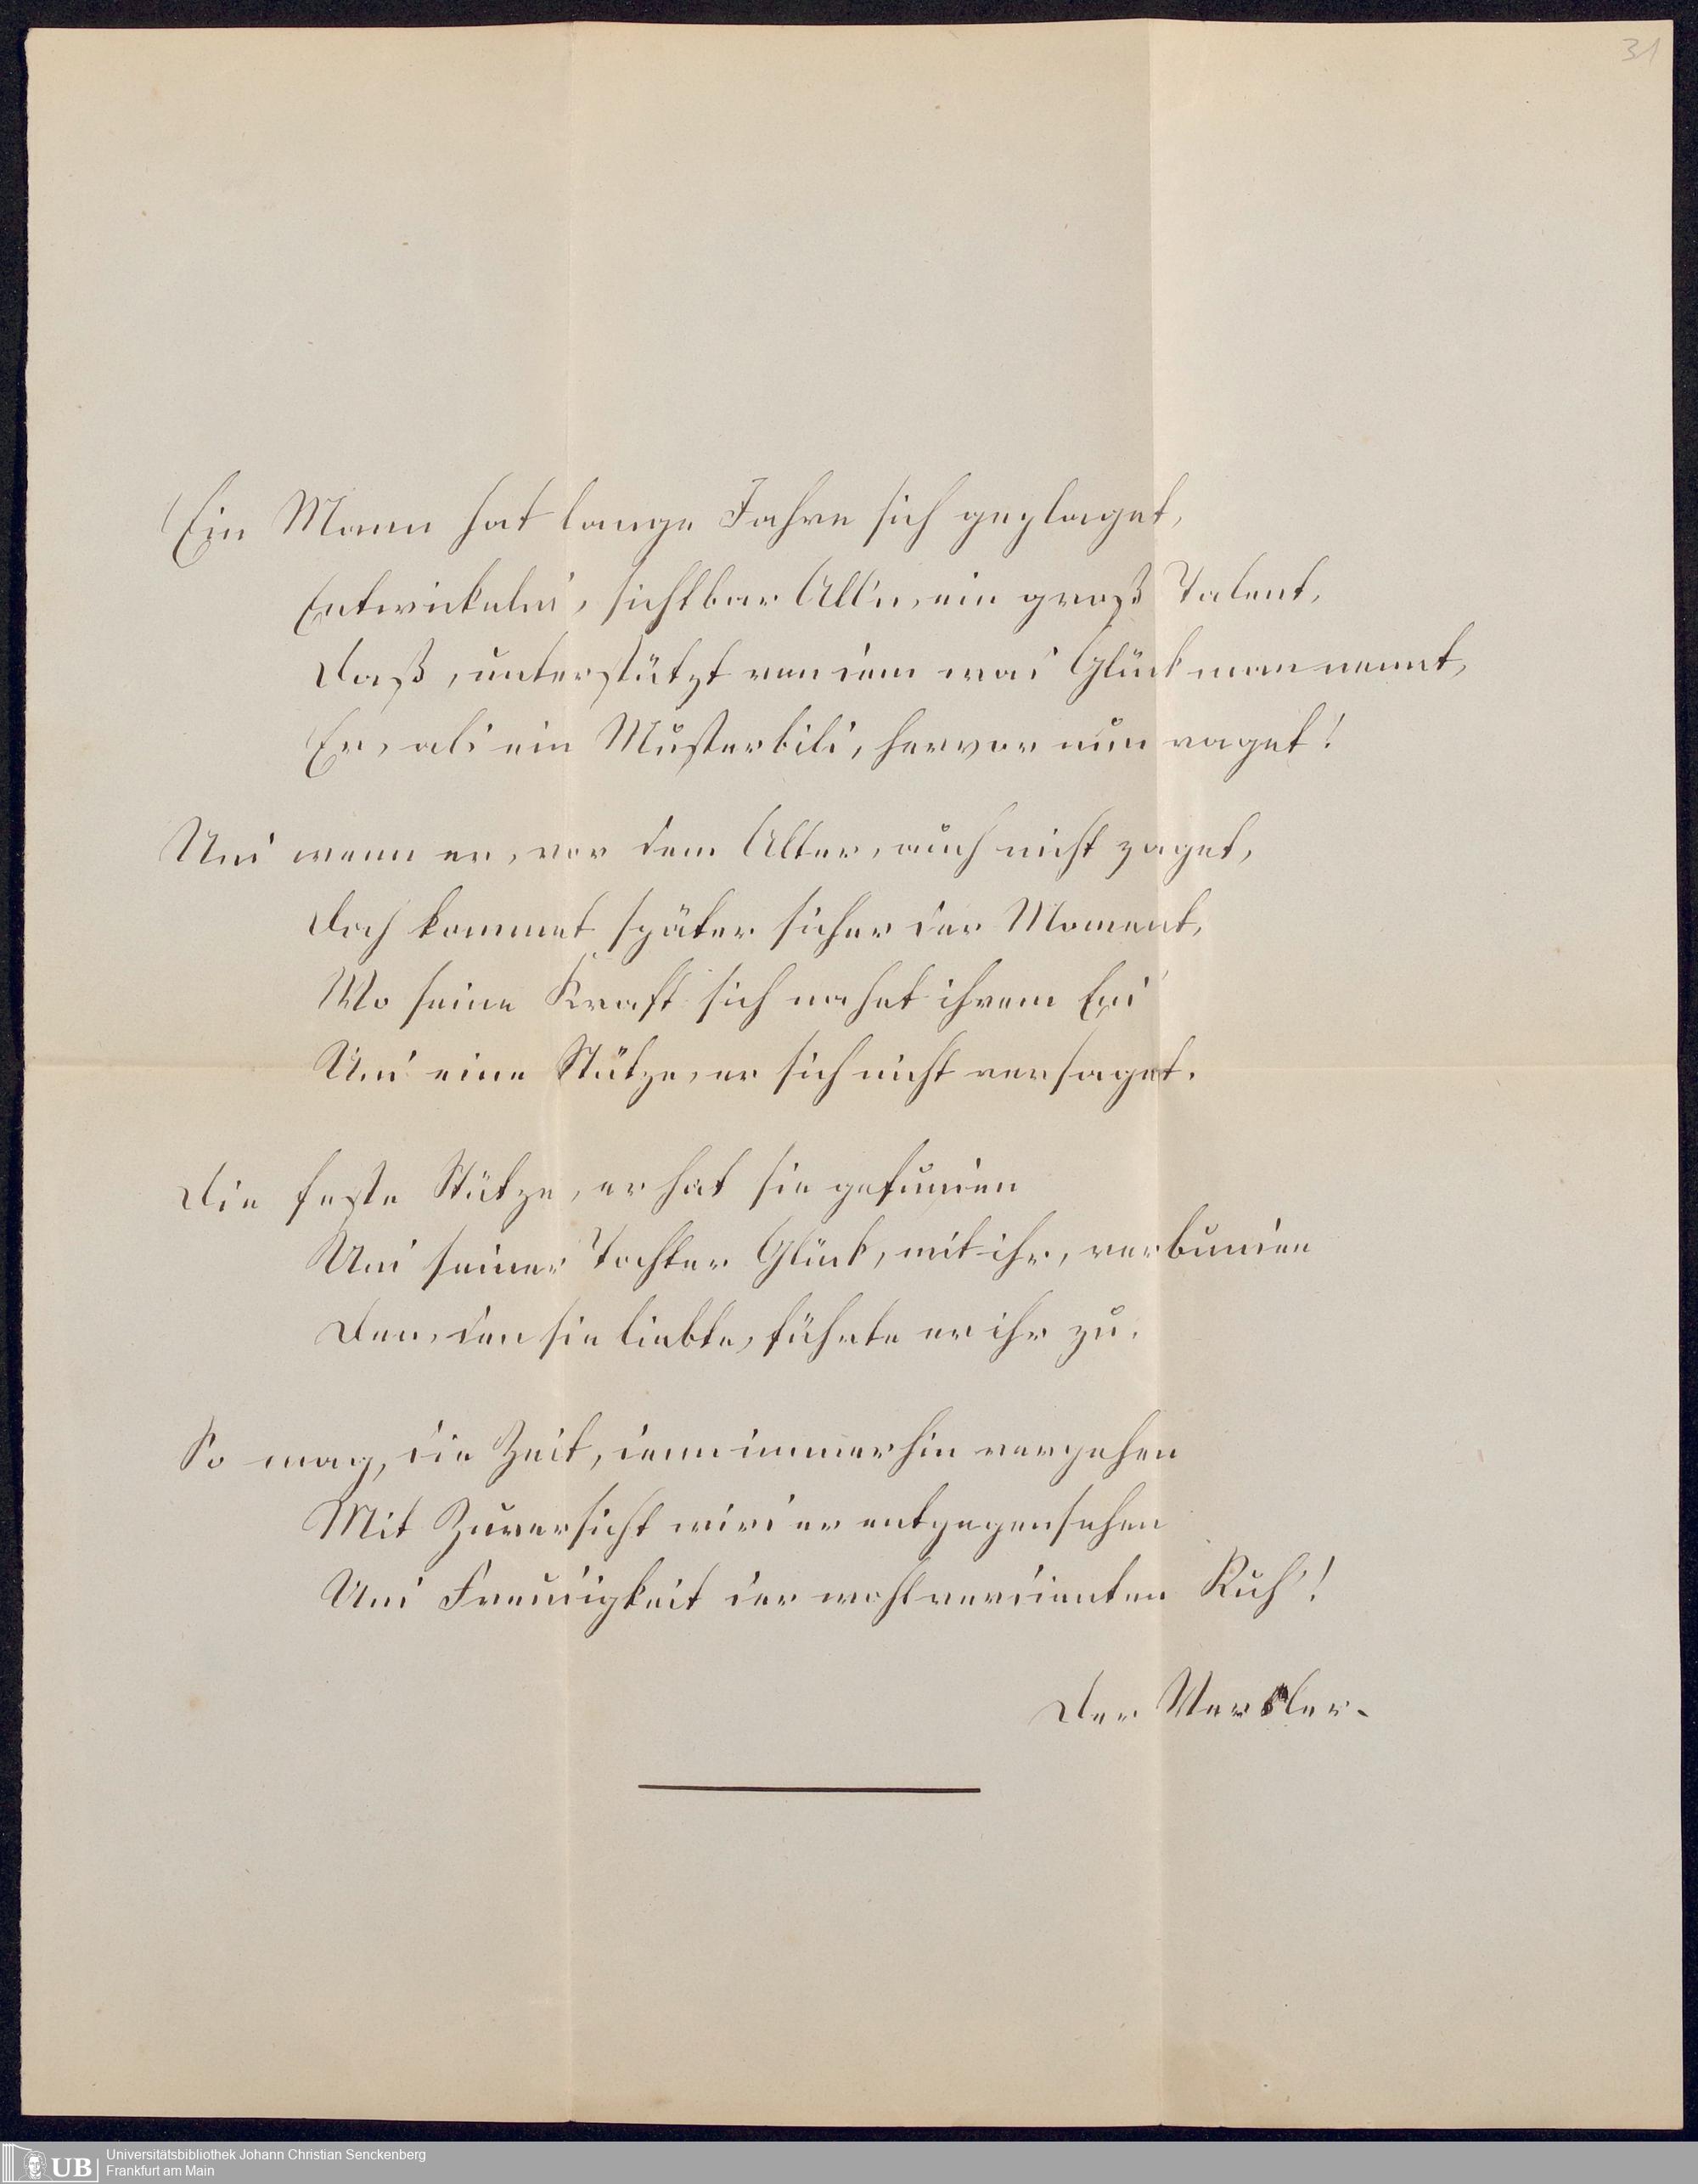 31
Ein Mann hat lange Jahre sich geplaget,
Entwickelnd, sichtbar All'n, ein groß Talent,
Daß, unterstützt von dem was Glück man nennt,
Er, als ein Musterbild, hervor nun raget!
Und wenn er, vor dem Alter, auch nicht zaget,
Doch kommet später sicher der Moment,
Wo seine Kraft sich nahet ihrem End'
Und eine Stütze, er sich nicht versaget.
Die feste Stütze, er hat sie gefunden
Und seiner Tochter Glück, mit ihr, verbunden
Den, den sie liebte, führte er ihr zu.
So mag, die Zeit, denn immerhin vergehen
Mit Zuversicht wird er entgegensehen
Und Freudigkeit der wohlverdienten Ruh'!
Der
Universitätsbibliothek Johann Christian Senckenberg
Frankfurt am Main
UB